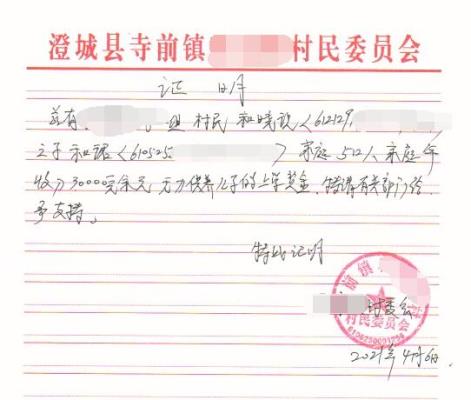 澄城县寺前镇 村民委员会
证 明
兹有 组 村民 和晓 (612129
之子 和 (610525 ) 家庭5口人、家庭年
收入3000元余元 无力供养儿子的上学 金、特请有关部门给
予支持。
特此证明
前镇
村委会
村民委员会
2021年4月6日